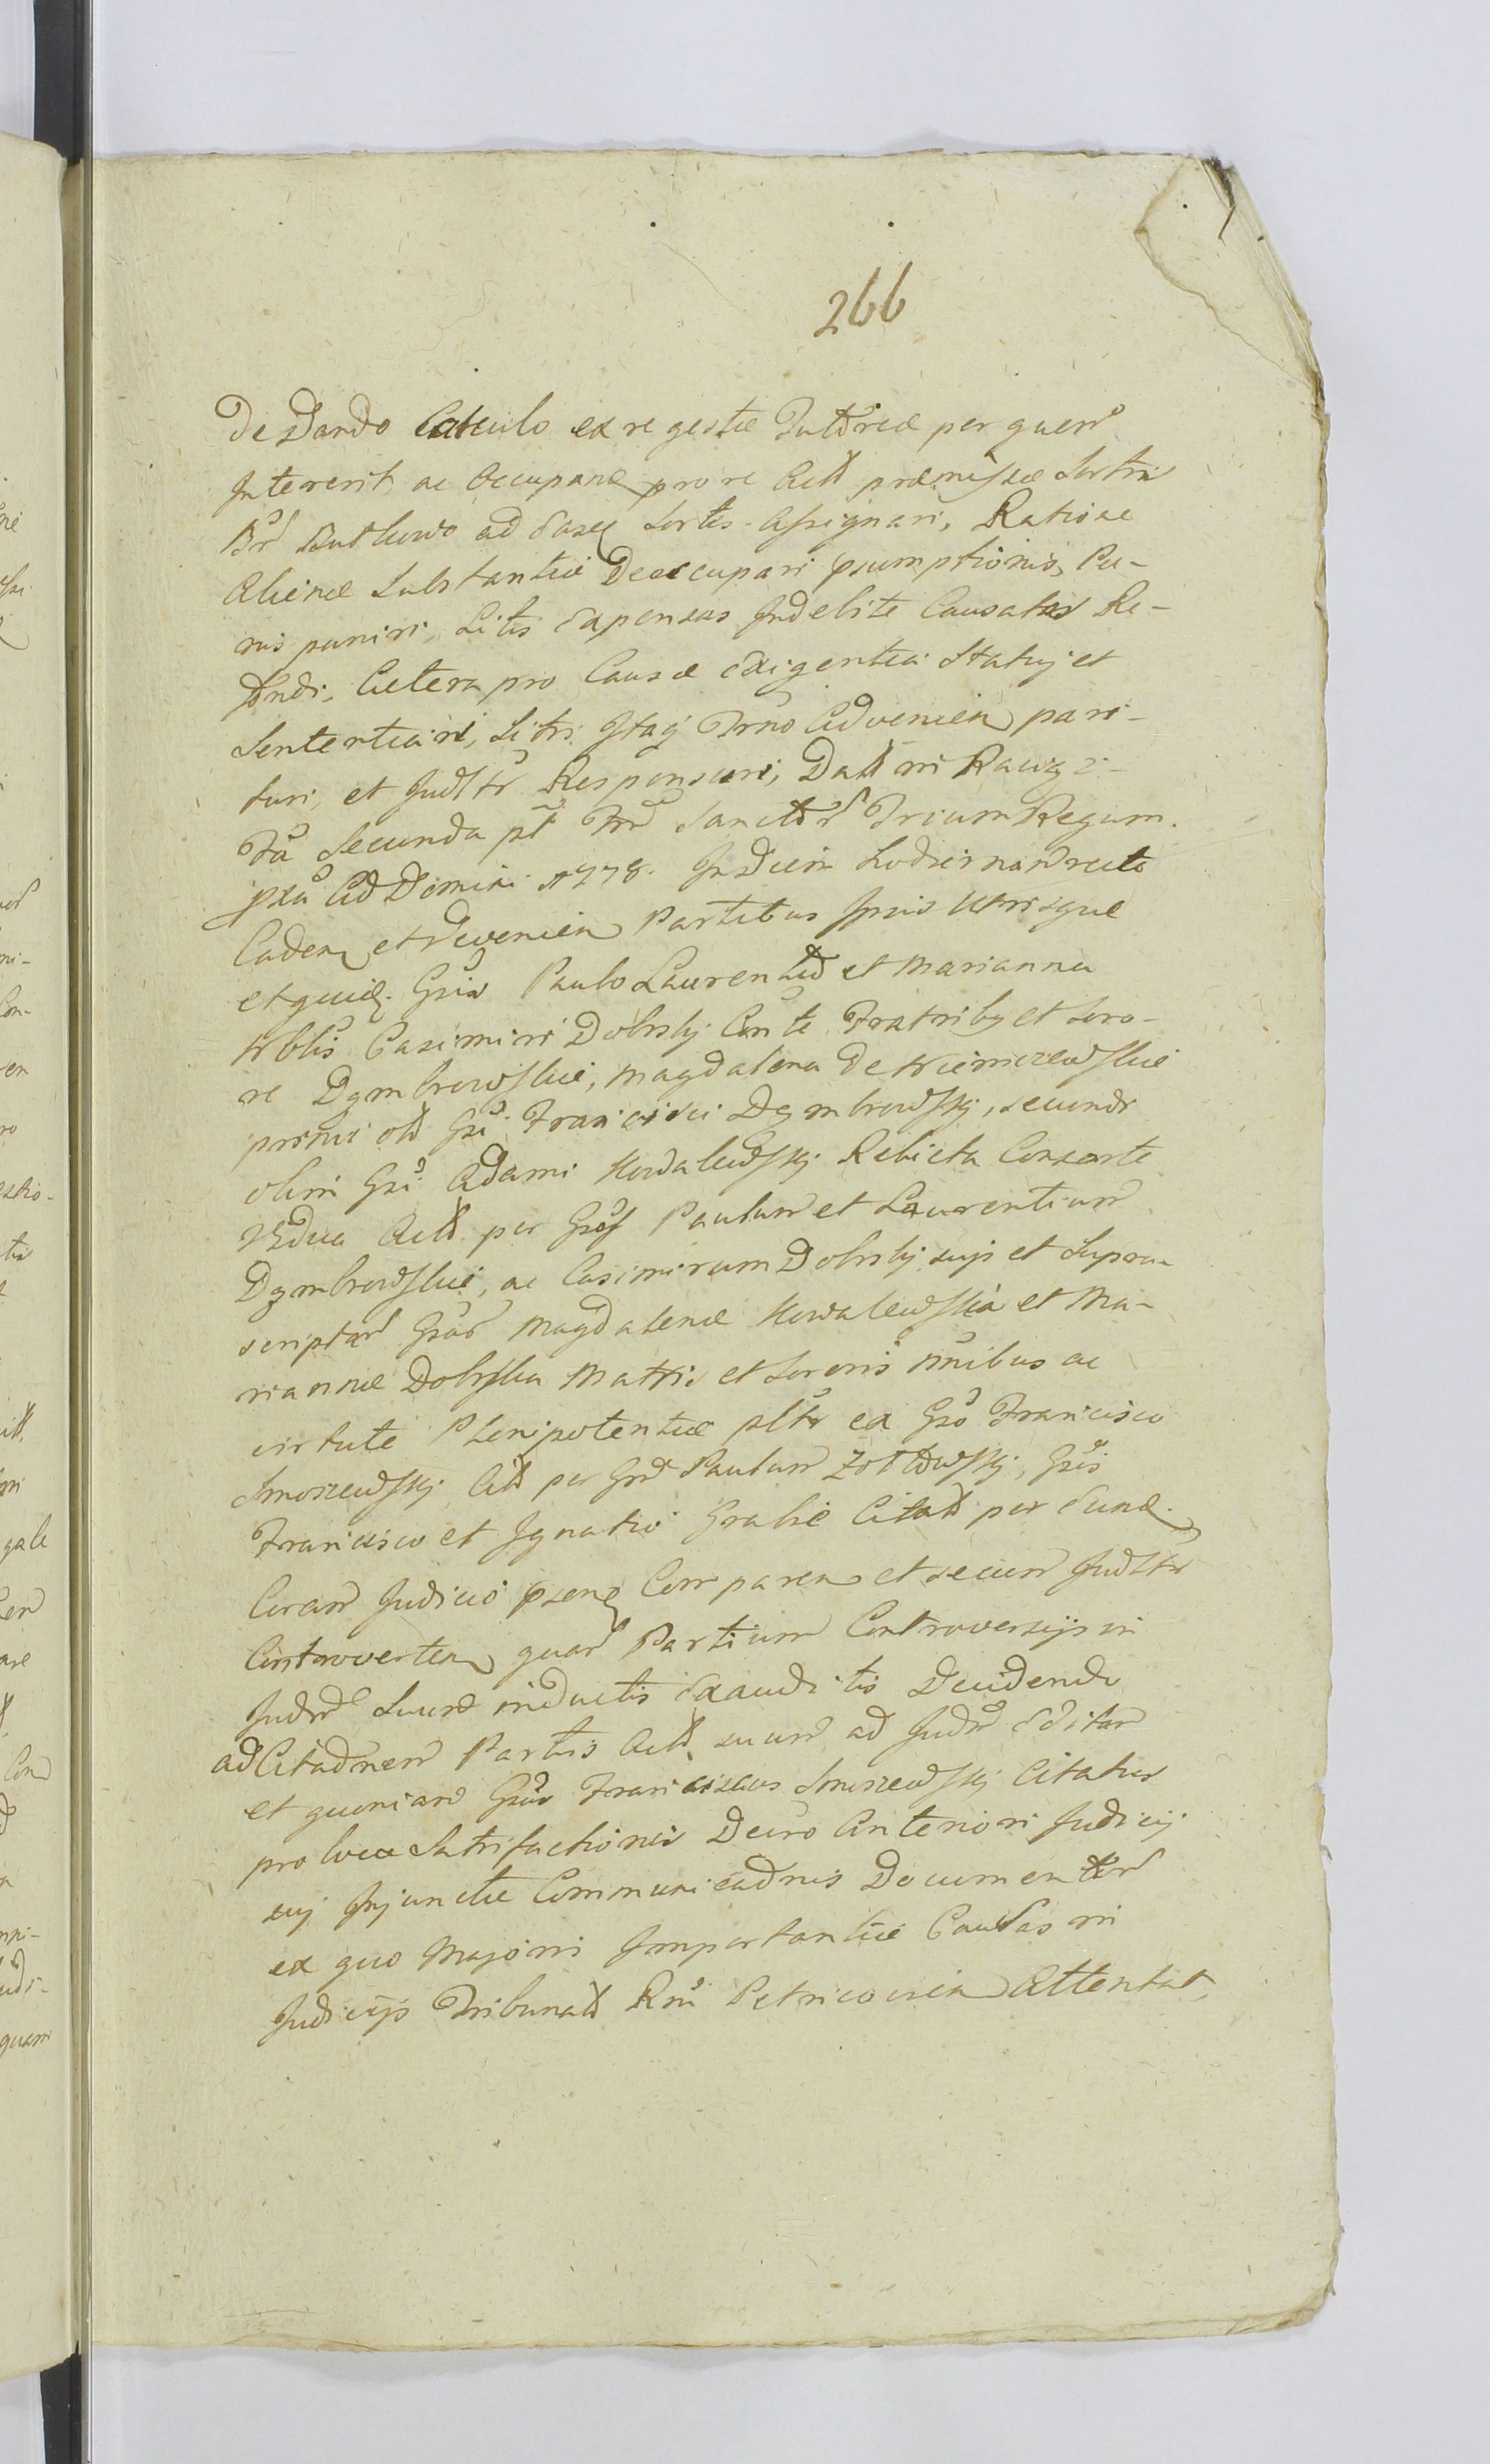 266
De Dando Calculo ex re gestæ Tutoreæ per quem
Intererit, ac Occupare pro re Actt præmissæ Sortis
Br Butkowo ad easq Sortes Assignari, Ratione
Alienæ Substantiæ Deoccupari præsumptionis, Pæ-
nis puniri, Litis Expensas Indebite Causatas Re-
fundi, Cætera pro Causæ Exigentia Statuj et
Sententiari, Litri Itaq Trno Advenien pari-
turi, et Judltr Responsuri, Datt in Rawa
Fa Secunda pt Fm Sanctor Trium Regum
pxa Ad Domini 1778. In Diem Hodiernam recte
Caden et Devenien Partibus Ipsis Utrisque
et quid. Gsis Paulo Laurentio et Marianna
Nblis Casimiri Dobrskj Conte Fratribg et Soro-
re Dąmbrowskie, Magdalena De Niemierzewskie
primi ol Gsi Francisci Dąmbrowskj, secundi
olim Gsi Adami Kowalewskj Relicta Consorte
Vidua Actt per Gsos Paulum et Laurentium
Dąmbrowskie, ac Casimirum Dobrskj suis et Supra-
scriptar Gsar Magdalenæ Kowalewska et Ma-
riannæ Dobrska Matris et Sororis nnibus ac
virtute Plenipotentiæ pltr ex Gso Francisco
Smoszewskj Citt per Gsd Paulum Zołtowskj, Gsis
Francisco et Ignatio Grabie Citatt per Eund.
Coram Judicio præsenq Comparen et secum Judltr
Controverten quar Partium Controversijs in
Judm Suum inductis Exauditis Decidendo
ad Citadnem Partis Actt suum ad Judm Editam
et quoniam Gsus Franciscus Smoszewskj Citatus
pro loco Satisfactionis Decro Anteriori Judicij
suj Injunctæ Communicadnis Documentor
ex quo Majoris Importantiæ Causas in
Judicijs Tribunatt Rni Petricovien Attentat,